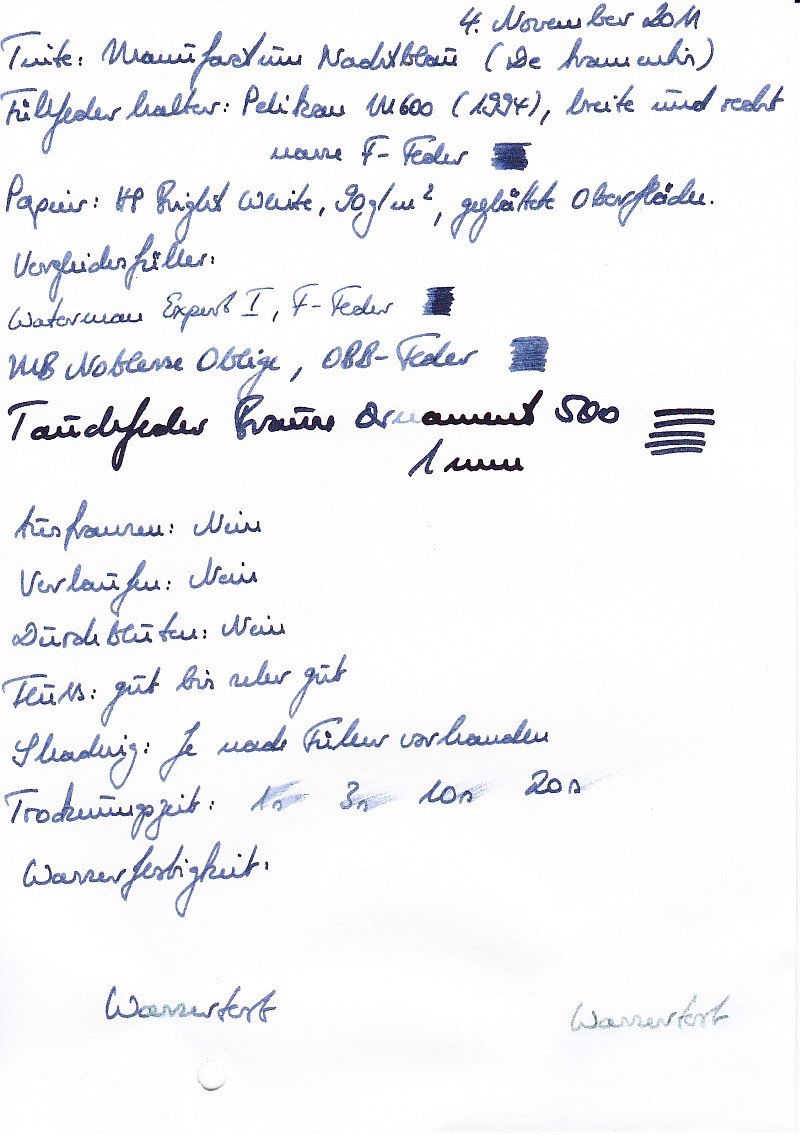 4. November 2011
Tinte: Manufactum Nachtblau (De Atramentis)
Füllfederhalter: Pelikan M600 (1994), breite und recht
nasse F-Feder
Papier: HP Bright White, 90g/m², geglättete Oberfläche.
Vergleichsfüller:
Waterman Expert I, F-Feder
MB Noblesse Oblige, OBB-Feder
Tauchfeder Brause Ornament 500
1 mm
Ausfransen: Nein
Verlaufen: Nein
Durchbluten: Nein
Fluss: gut bis sehr gut
Shading: Je nach Füller vorhanden
Trocknungszeit: 1s 3s 10s 20s
Wasserfestigkeit:
Wassertest Wassertest